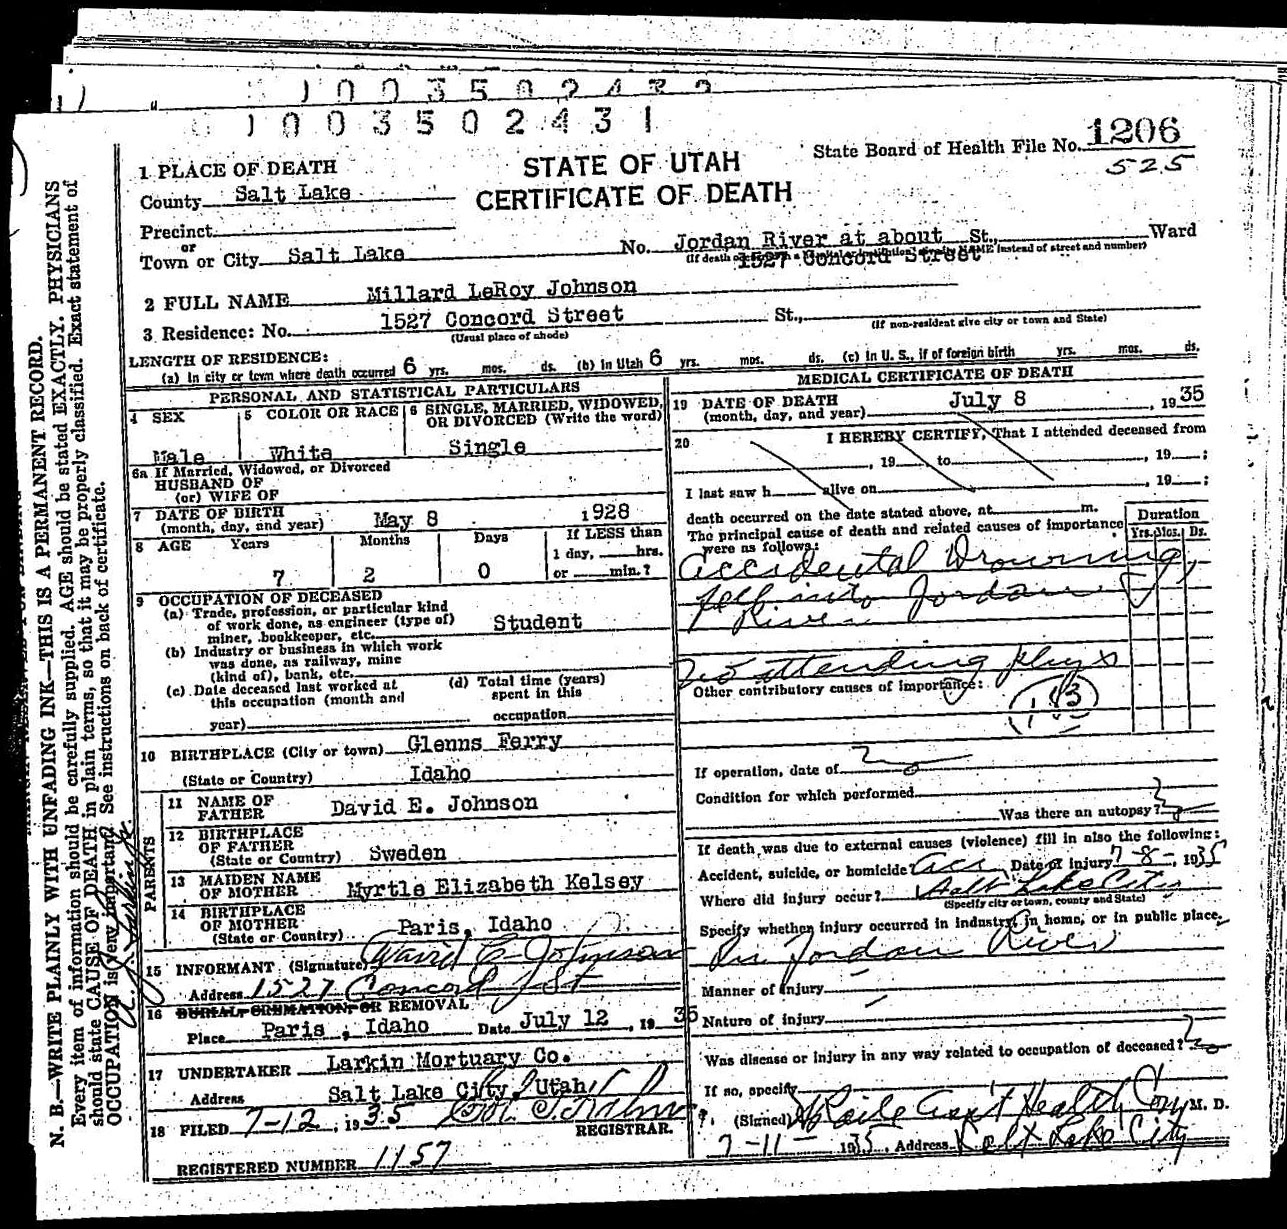 1003502432
1003502431
State Board of Health File No. 1206
525
STATE OF UTAH
CERTIFICATE OF DEATH
1 PLACE OF DEATH
County Salt Lake
Precinct
or
Town or City Salt Lake No. Jordan River at about St., Ward
(If death occurred in a hospital or institution, give its NAME instead of street and number)
1527 Concord Street
2 FULL NAME Millard LeRoy Johnson
3 Residence: No. 1527 Concord Street St.,
(Usual place of abode) (If non-resident give city or town and State)
LENGTH OF RESIDENCE:
(a) In city or town where death occurred 6 yrs. mos. ds. (b) in Utah 6 yrs. mos. ds. (c) in U. S., if of foreign birth yrs. mos. ds.
PERSONAL AND STATISTICAL PARTICULARS
4 SEX
Male
5 COLOR OR RACE
White
6 SINGLE, MARRIED, WIDOWED,
OR DIVORCED (Write the word)
Single
6a If Married, Widowed, or Divorced
HUSBAND OF
(or) WIFE OF
7 DATE OF BIRTH
(month, day, and year) May 8 1928
8 AGE Years Months Days If LESS than
1 day, hrs.
7 2 0 or min.?
9 OCCUPATION OF DECEASED
(a) Trade, profession, or particular kind
of work done, as engineer (type of)
miner, bookkeeper, etc. Student
(b) Industry or business in which work
was done, as railway, mine
(kind of), bank, etc.
(c) Date deceased last worked at
this occupation (month and
year)
(d) Total time (years)
spent in this
occupation
10 BIRTHPLACE (City or town) Glenns Ferry
(State or Country) Idaho
PARENTS
11 NAME OF
FATHER David E. Johnson
12 BIRTHPLACE
OF FATHER
(State or Country) Sweden
13 MAIDEN NAME
OF MOTHER Myrtle Elizabeth Kelsey
14 BIRTHPLACE
OF MOTHER
(State or Country) Paris, Idaho
15 INFORMANT (Signature) David E Johnson
Address 1527 Concord St
16 BURIAL CREMATION, OR REMOVAL
Place Paris, Idaho Date July 12, 1935
17 UNDERTAKER Larkin Mortuary Co.
Address Salt Lake City, Utah
18 FILED 7-12, 1935
REGISTRAR.
REGISTERED NUMBER 1157
MEDICAL CERTIFICATE OF DEATH
19 DATE OF DEATH
(month, day, and year) July 8, 1935
20 I HEREBY CERTIFY, That I attended deceased from
, 19 to , 19 ;
I last saw h alive on , 19 ;
death occurred on the date stated above, at m.
The principal cause of death and related causes of importance
were as follows:
Duration
Yrs. Mos. Ds.
Accidental Drowning,
fell into Jordan
River
No attending phys
Other contributory causes of importance:
183
If operation, date of No
Condition for which performed
Was there an autopsy? No
If death was due to external causes (violence) fill in also the following:
Accident, suicide, or homicide Acc. Date of injury 7-8-, 1935
Where did injury occur? Salt Lake City
(Specify city or town, county and State)
Specify whether injury occurred in industry, in home, or in public place,
In Jordan River
Manner of injury
Nature of injury
Was disease or injury in any way related to occupation of deceased? No
If so, specify
(Signed) Ass't Health Com M. D.
7-11-1935, Address Salt Lake City
N. B.—WRITE PLAINLY WITH UNFADING INK—THIS IS A PERMANENT RECORD.
Every item of information should be carefully supplied. AGE should be stated EXACTLY. PHYSICIANS
should state CAUSE OF DEATH in plain terms, so that it may be properly classified. Exact statement of
OCCUPATION is very important. See instructions on back of certificate.